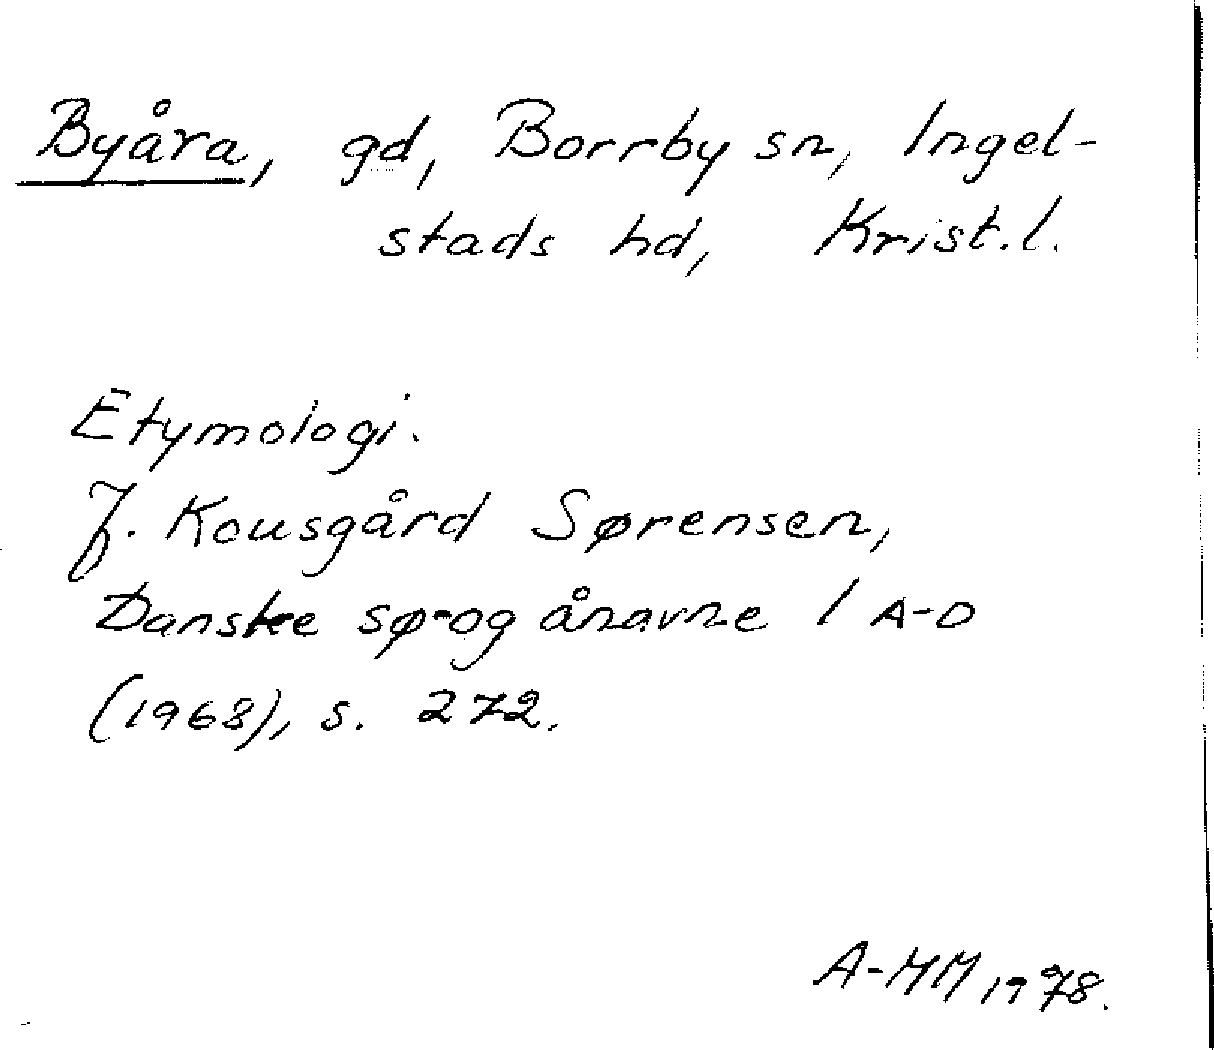 Byåra, gd, Borrby sn, Ingel-
stads hd, Krist.l.
Etymologi.
J. Kousgård Sørensen,
Danske sø-og ånavne I A-D
(1968), s. 272.
A-MM 1978.